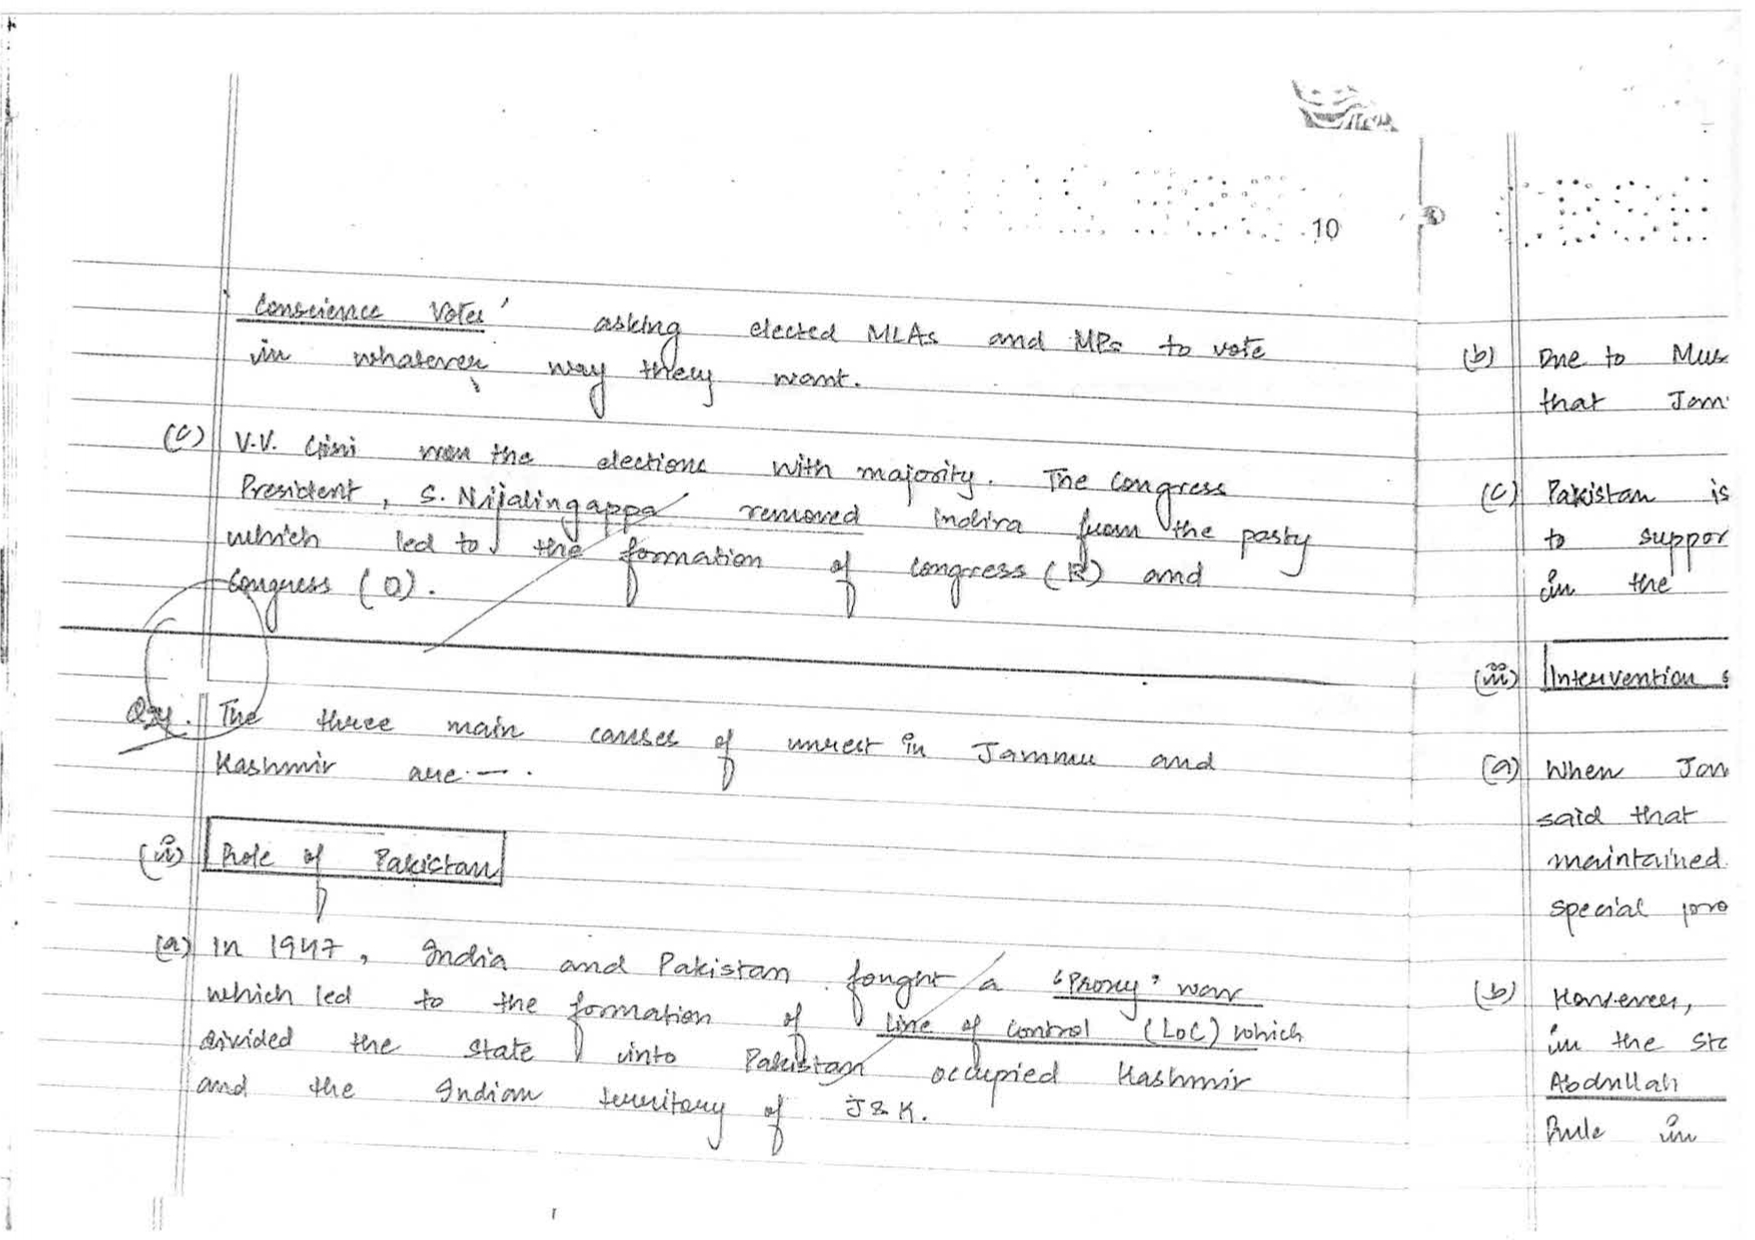 10
Conscience Votes' asking elected MLAs and MPs to vote
in whatever way they want.
(c) V.V. Giri won the elections with majority. The Congress
President, S. Nijalingappa removed Indira from the party
which led to the formation of Congress (R) and
Congress (O).
The three main causes of unrest in Jammu and
Kashmir are —.
Role of Pakistan
(a) In 1947, India and Pakistan fought a 'Proxy' war
which led to the formation of Line of Control (LoC) which
divided the state into Pakistan occupied Kashmir
and the Indian territory of J&K.
(b) Due to Mus
that Jam
(c) Pakistan is
to suppor
in the
(iii) Intervention
(a) When Jam
said that
maintained
special pro
(b) However,
in the sta
Abdullah
Rule in